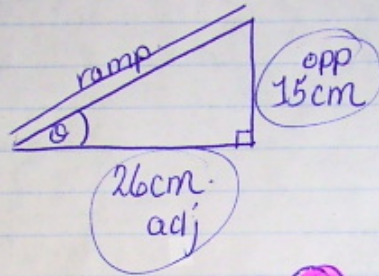 ramp
opp
15cm
θ
26cm.
adj